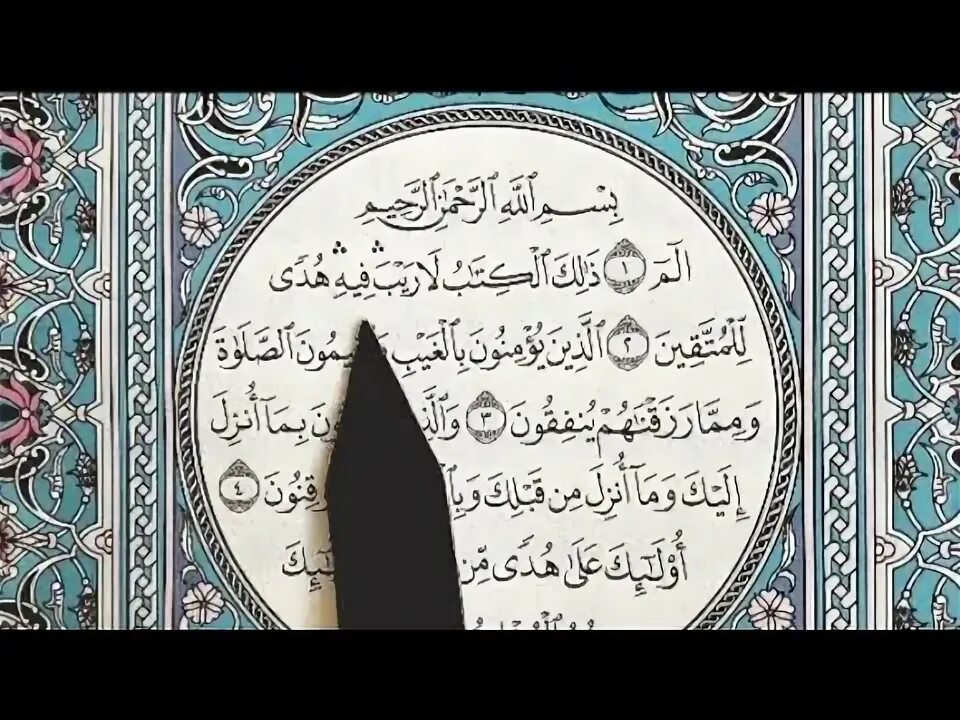 بِسْمِ ٱللَّهِ ٱلرَّحْمَٰنِ ٱلرَّحِيمِ
الٓمٓ ١ ذَٰلِكَ ٱلْكِتَٰبُ لَا رَيْبَ ۛ فِيهِ ۛ هُدًى
لِّلْمُتَّقِينَ ٢ ٱلَّذِينَ يُؤْمِنُونَ بِٱلْغَيْبِ ٱلصَّلَوٰةَ
وَمِمَّا رَزَقْنَٰهُمْ يُنفِقُونَ ٣ بِمَآ أُنزِلَ
إِلَيْكَ وَمَآ أُنزِلَ مِن قَبْلِكَ ٤
أُو۟لَٰٓئِكَ عَلَىٰ هُدًى مِّن